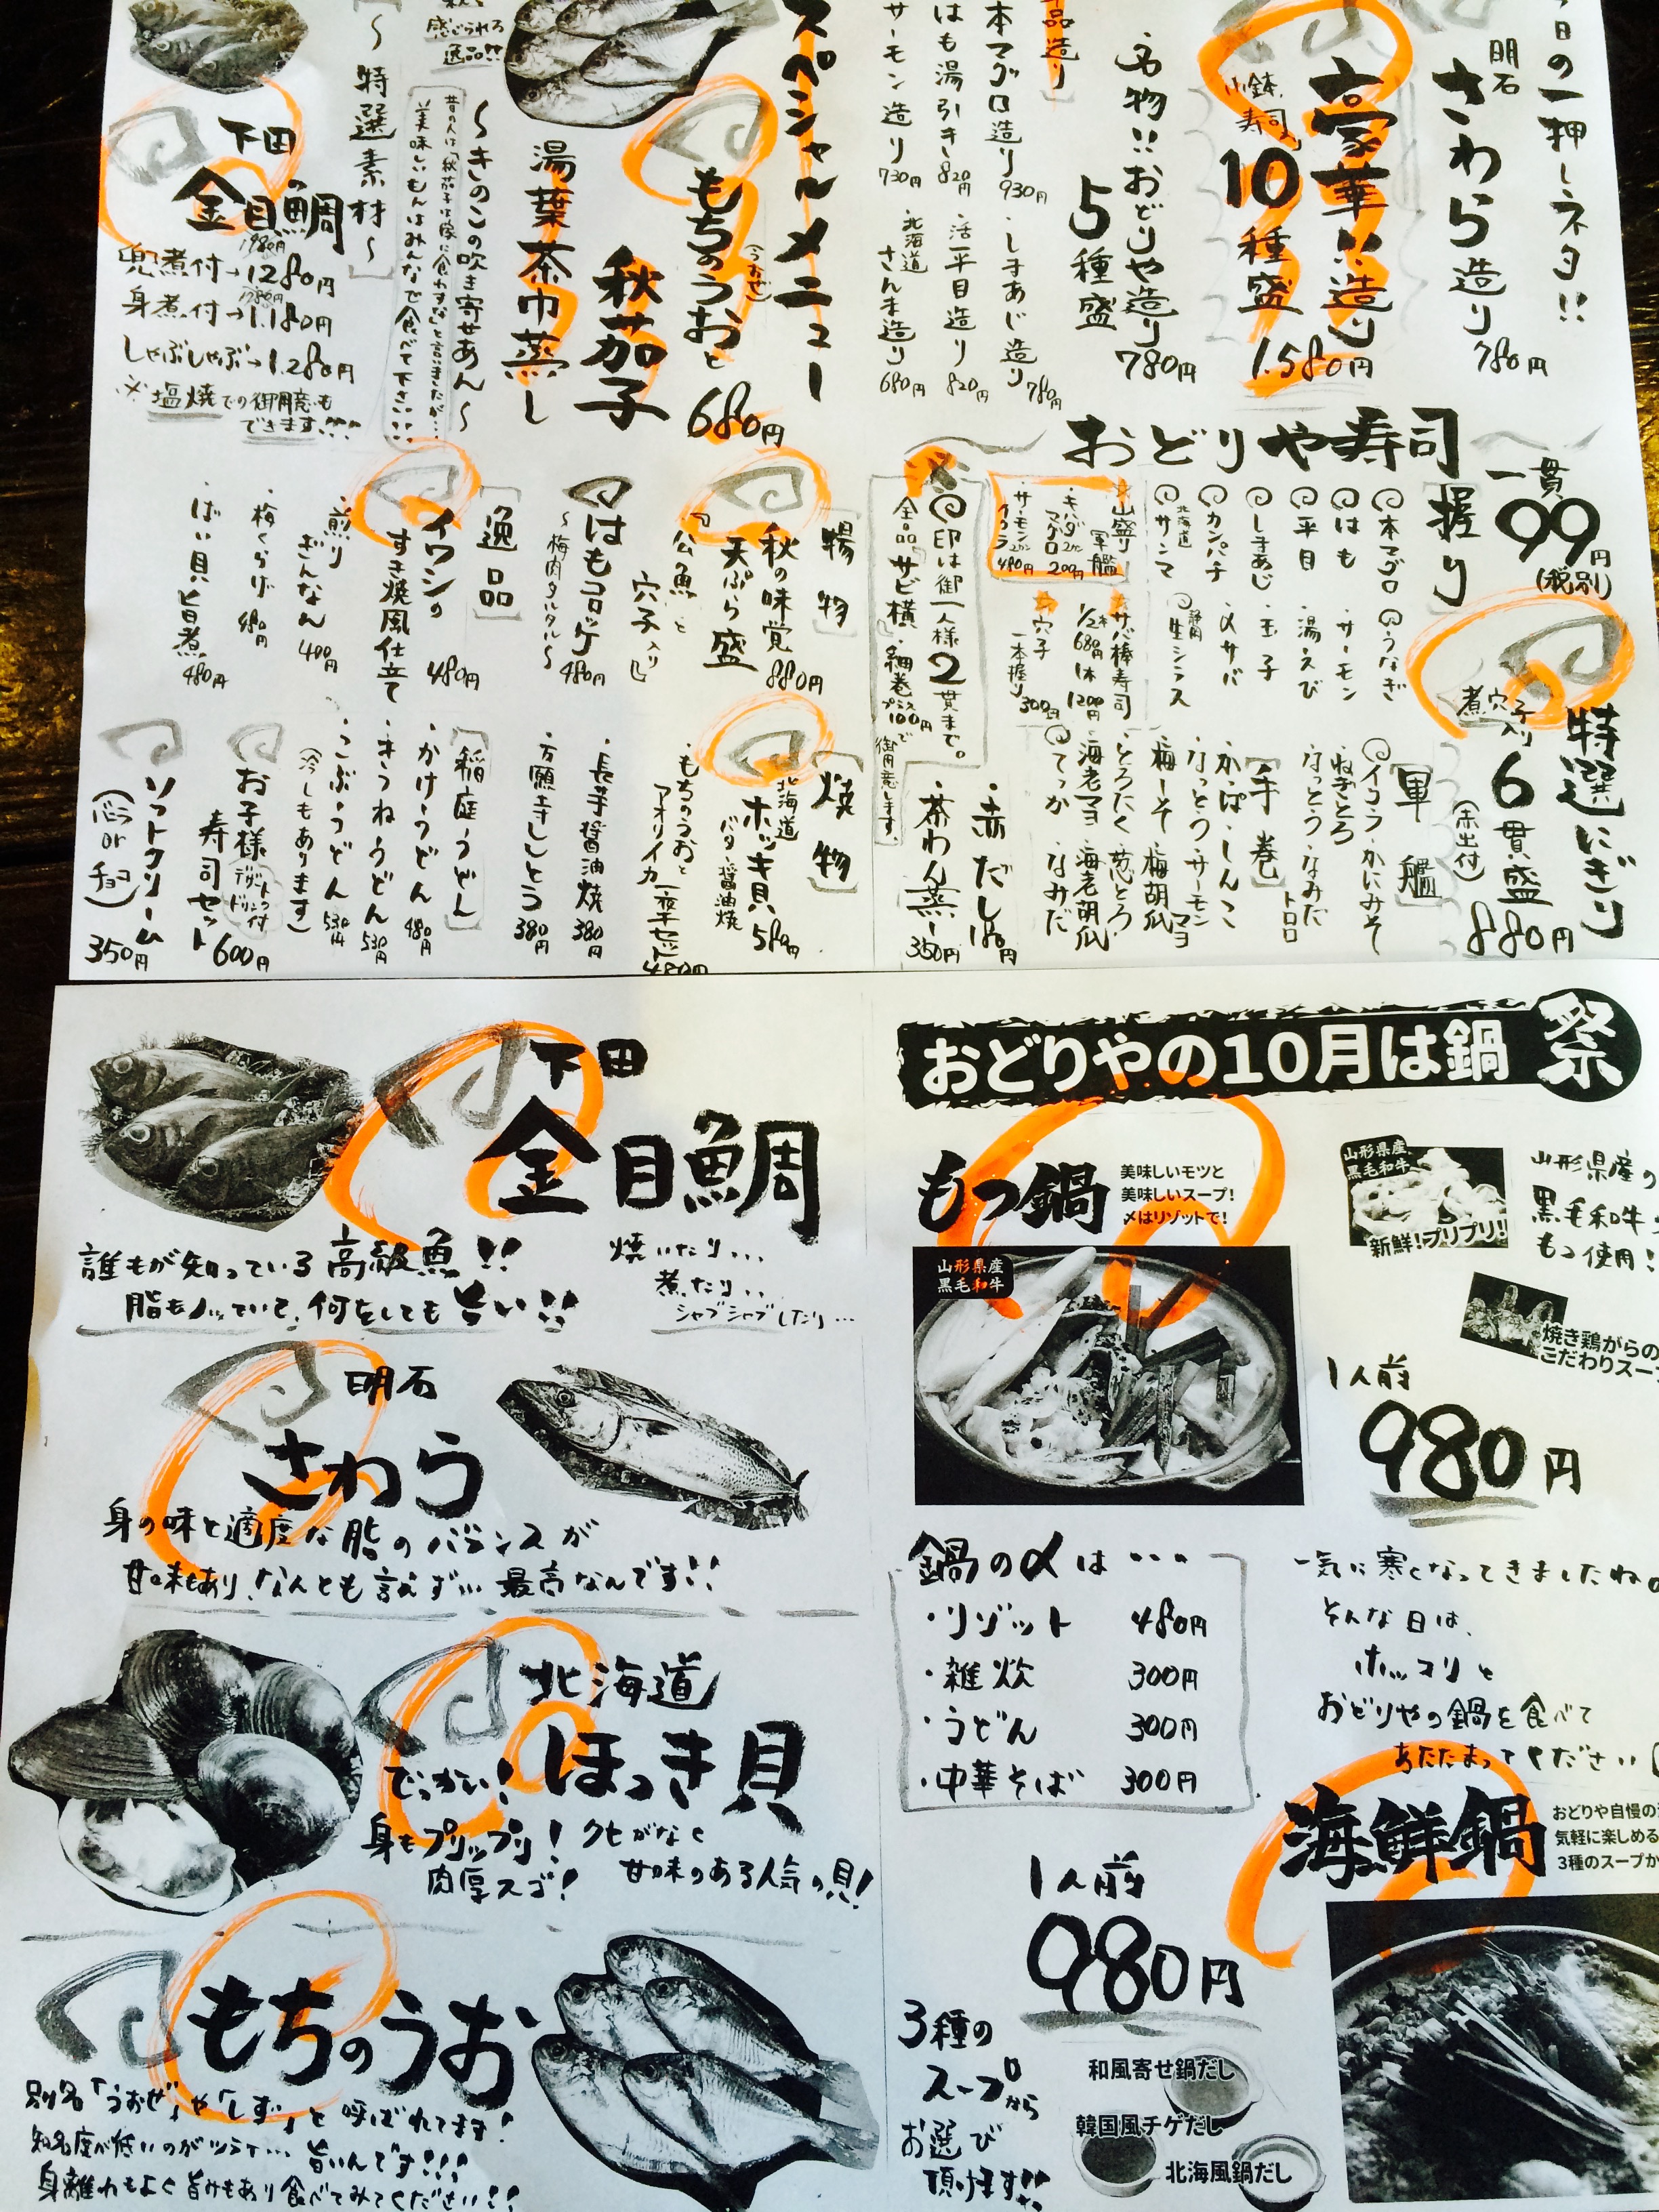 今日の一押しネタ!!
明石
さわら造り 780円
豪華!!造り
小鉢、寿司
10種盛
1.580円
名物!!おどりや造り
5種盛 780円
本マグロ造り 930円
はも湯引き 820円
サーモン造り 730円
・しまあじ造り 780円
・活平目造り 820円
・北海道 さんま造り 680円
スペシャルメニュー
もちのうおと
秋茄子 680円
湯葉茶巾蒸し
〜きのこの吹き寄せあん〜
昔の人は「秋茄子は嫁に食わすな」と言いましたが…
美味しいもんはみんなで食べて下さい!!
感じられる
逸品!!
〜特選素材〜
下田
金目鯛
兜煮付→1280円
身煮付→1.180円
しゃぶしゃぶ→1.280円
※塩焼での御用意も
できます!!!
おどりや寿司
握り
一貫
99円
(税別)
本マグロ
はも
平目
しまあじ
カンパチ
北海道
サンマ
うなぎ
・サーモン
・湯えび
・玉子
・〆サバ
静岡
生シラス
山盛り軍艦
・キハダマグロ 2カン 200円
・サーモンイクラ 2カン 480円
サバ棒寿司
1/2本 680円 1本 1200円
穴子
一本握り 300円
印は御一人様2貫まで。
全品「サビ横」・細巻プラス100円で御用意します。
特選にぎり
煮穴子入り
6貫盛
(赤出付)
880円
[軍艦]
イクラ・かにみそ
・ねぎとろ
・なっとう・なみだトロロ
[手巻]
・かっぱ・しんこ
・なっとう・サーモンマヨ
・梅しそ・梅胡瓜
・とろたく・葱とろ
・海老マヨ・海老胡瓜
てっか・なみだ
・赤だし 180円
・茶わん蒸し 350円
[揚物]
秋の味覚
天ぷら盛 880円
「公魚と
穴子入り」
・はもコロッケ 480円
〜梅肉タルタル〜
[逸品]
イワシの
すき焼風仕立て 480円
・煎りぎんなん 400円
・梅くらげ 480円
・ばい貝旨煮 480円
[焼物]
北海道
ホッキ貝 580円
バター醤油焼
もちのうおと
アオリイカ一夜干セット 480円
・長芋醤油焼 380円
・万願寺ししとう 380円
[稲庭うどん]
・かけうどん 480円
・きつねうどん 530円
・こぶうどん 530円
(冷しもあります)
お子様
寿司セット
デザートドリンク付
600円
ソフトクリーム
(バニラorチョコ)
350円
下田
金目鯛
誰もが知っている高級魚!!
脂ものっていて、何をしても旨い!!
焼いたり…
煮たり…
シャブシャブしたり…
明石
さわら
身の味と適度な脂のバランスが
甘味もあり、なんとも言えず… 最高なんです!!
北海道
ほっき貝
でっかい!
身もプリップリ!
肉厚スゴ!
クセがなく
甘味のある人気の貝!
もちのうお
別名「うおぜ」や「しず」と呼ばれてます!
知名度が低いのがツライ… 旨いんです!!!
身離れもよく旨みもあり食べてみてください!!
おどりやの10月は鍋祭
もつ鍋
美味しいモツと
美味しいスープ!
〆はリゾットで!
山形県産
黒毛和牛
山形県産
黒毛和牛
新鮮!プリプリ!
山形県産の
黒毛和牛
もつ使用!
焼き鶏がらの
こだわりスープ
1人前
980円
鍋の〆は…
・リゾット 480円
・雑炊 300円
・うどん 300円
・中華そば 300円
一気に寒くなってきましたね。
そんな日は、
ホッコリと
おどりやの鍋を食べて
あたたまってください
海鮮鍋
おどりや自慢の
気軽に楽しめる
3種のスープか
1人前
980円
3種の
スープから
お選び
頂けます!!
和風寄せ鍋だし
韓国風チゲだし
北海風鍋だし